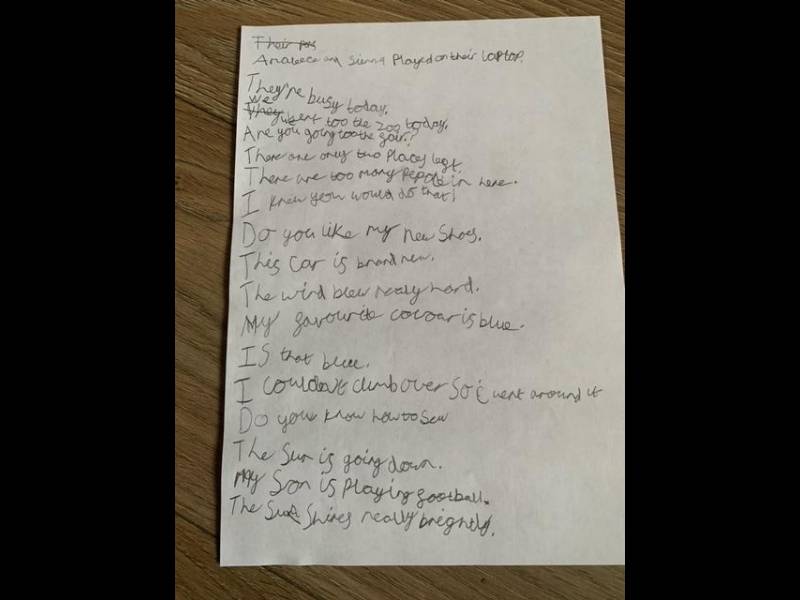 Their
and Sienna Played on their laptop.
They're busy today.
We
They went too the zoo today.
Are you going too the fair?
There are only two places left.
There are too many people in here.
I knew you would do that!
Do you like my new shoes.
This Car is brand new.
The wind blew really hard.
My favourite colour is blue.
Is that blue.
I Couldn't climb over So i went around it
Do you know how to Sew
The Sun is going down.
My Son is Playing football.
The Shines really brightly.